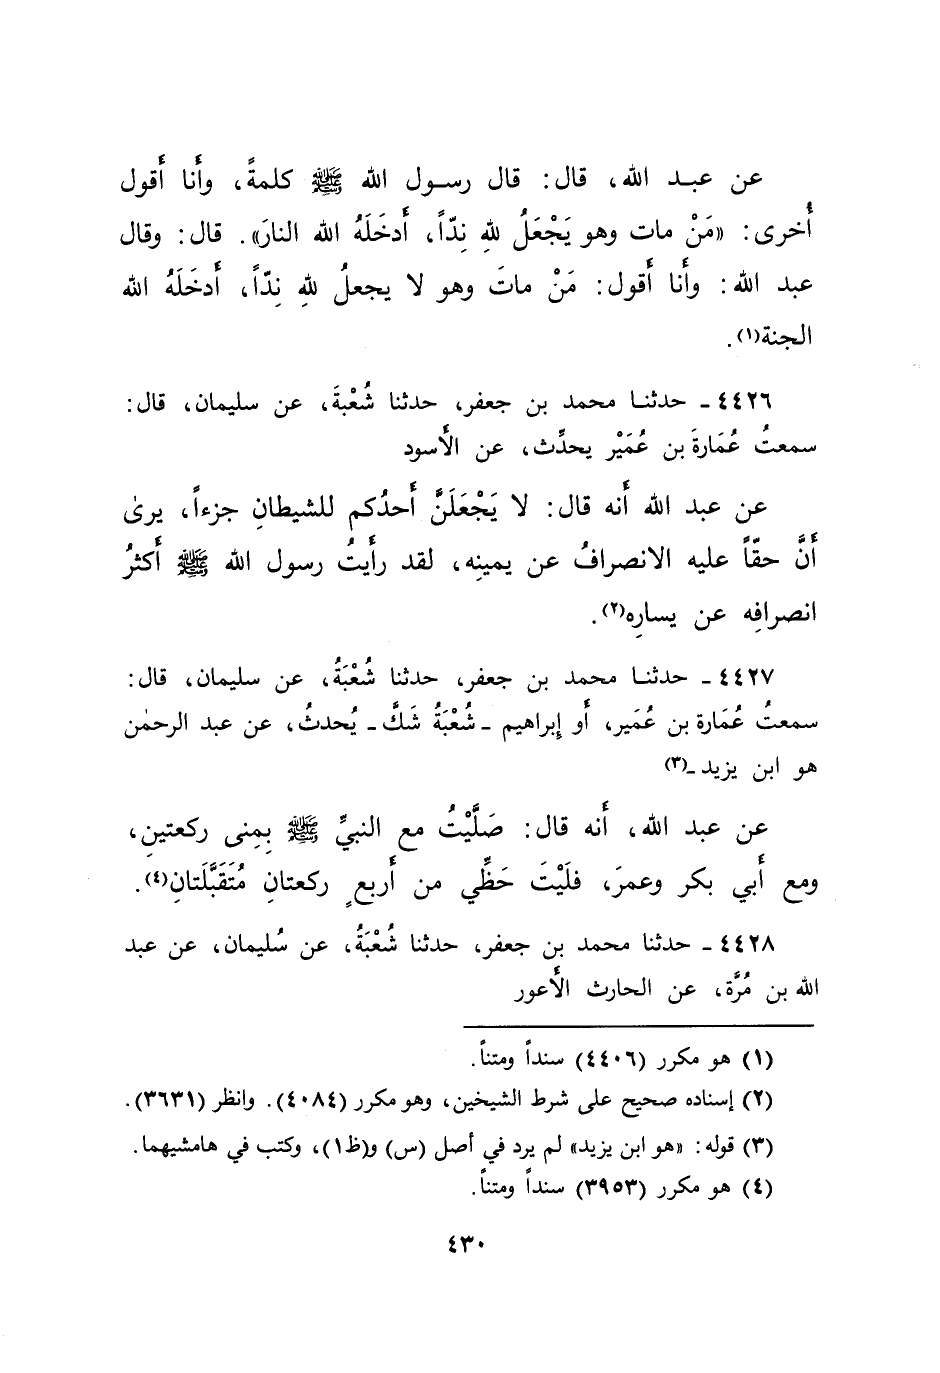 عن عبـد الله، قال: قال رسـول الله ﷺ كلمةً، وأَنا أَقول
أُخرى: «مَنْ مات وهو يَجْعَلُ للهِ نِدّاً، أَدخَلَهُ الله النارَ». قال: وقال
عبد الله: وأَنا أَقول: مَنْ ماتَ وهو لا يجعلُ للهِ نِدّاً، أَدخَلَهُ الله
الجنة(١).
٤٤٢٦ ـ حدثنـا محمد بن جعفر، حدثنا شُعْبةَ، عن سليمان، قال:
سمعتُ عُمَارةَ بن عُمَيْر يحدِّث، عن الأَسود
عن عبد الله أَنه قال: لا يَجْعَلَنَّ أَحدُكم للشيطانِ جزءاً، يرىٰ
أَنَّ حقّاً عليه الانصرافُ عن يمينِه، لقد رأَيتُ رسول الله ﷺ أَكثرُ
انصرافِه عن يسارِه(٢).
٤٤٢٧ ـ حدثنـا محمد بن جعفر، حدثنا شُعْبَةُ، عن سليمان، قال:
سمعتُ عُمَارة بن عُمَير، أَو إِبراهيم ـ شُعْبَةُ شَكَّ ـ يُحدثُ، عن عبد الرحمٰن
هو ابن يزيد ـ(٣)
عن عبد الله، أَنه قال: صَلَّيْتُ مع النبيِّ ﷺ بِمِنى ركعتينِ،
ومع أَبي بكر وعمرَ، فلَيْتَ حَظِّي من أَربعٍ ركعتانِ مُتَقَبَّلَتانِ(٤).
٤٤٢٨ ـ حدثنا محمد بن جعفر، حدثنا شُعْبَةُ، عن سُليمان، عن عبد
الله بن مُرَّة، عن الحارث الأَعور
(١) هو مكرر (٤٤٠٦) سنداً ومتناً.
(٢) إسناده صحيح على شرط الشيخين، وهو مكرر (٤٠٨٤). وانظر (٣٦٣١).
(٣) قوله: «هو ابن يزيد» لم يرد في أصل (س) و(ظ١)، وكتب في هامشيهما.
(٤) هو مكرر (٣٩٥٣) سنداً ومتناً.
٤٣٠